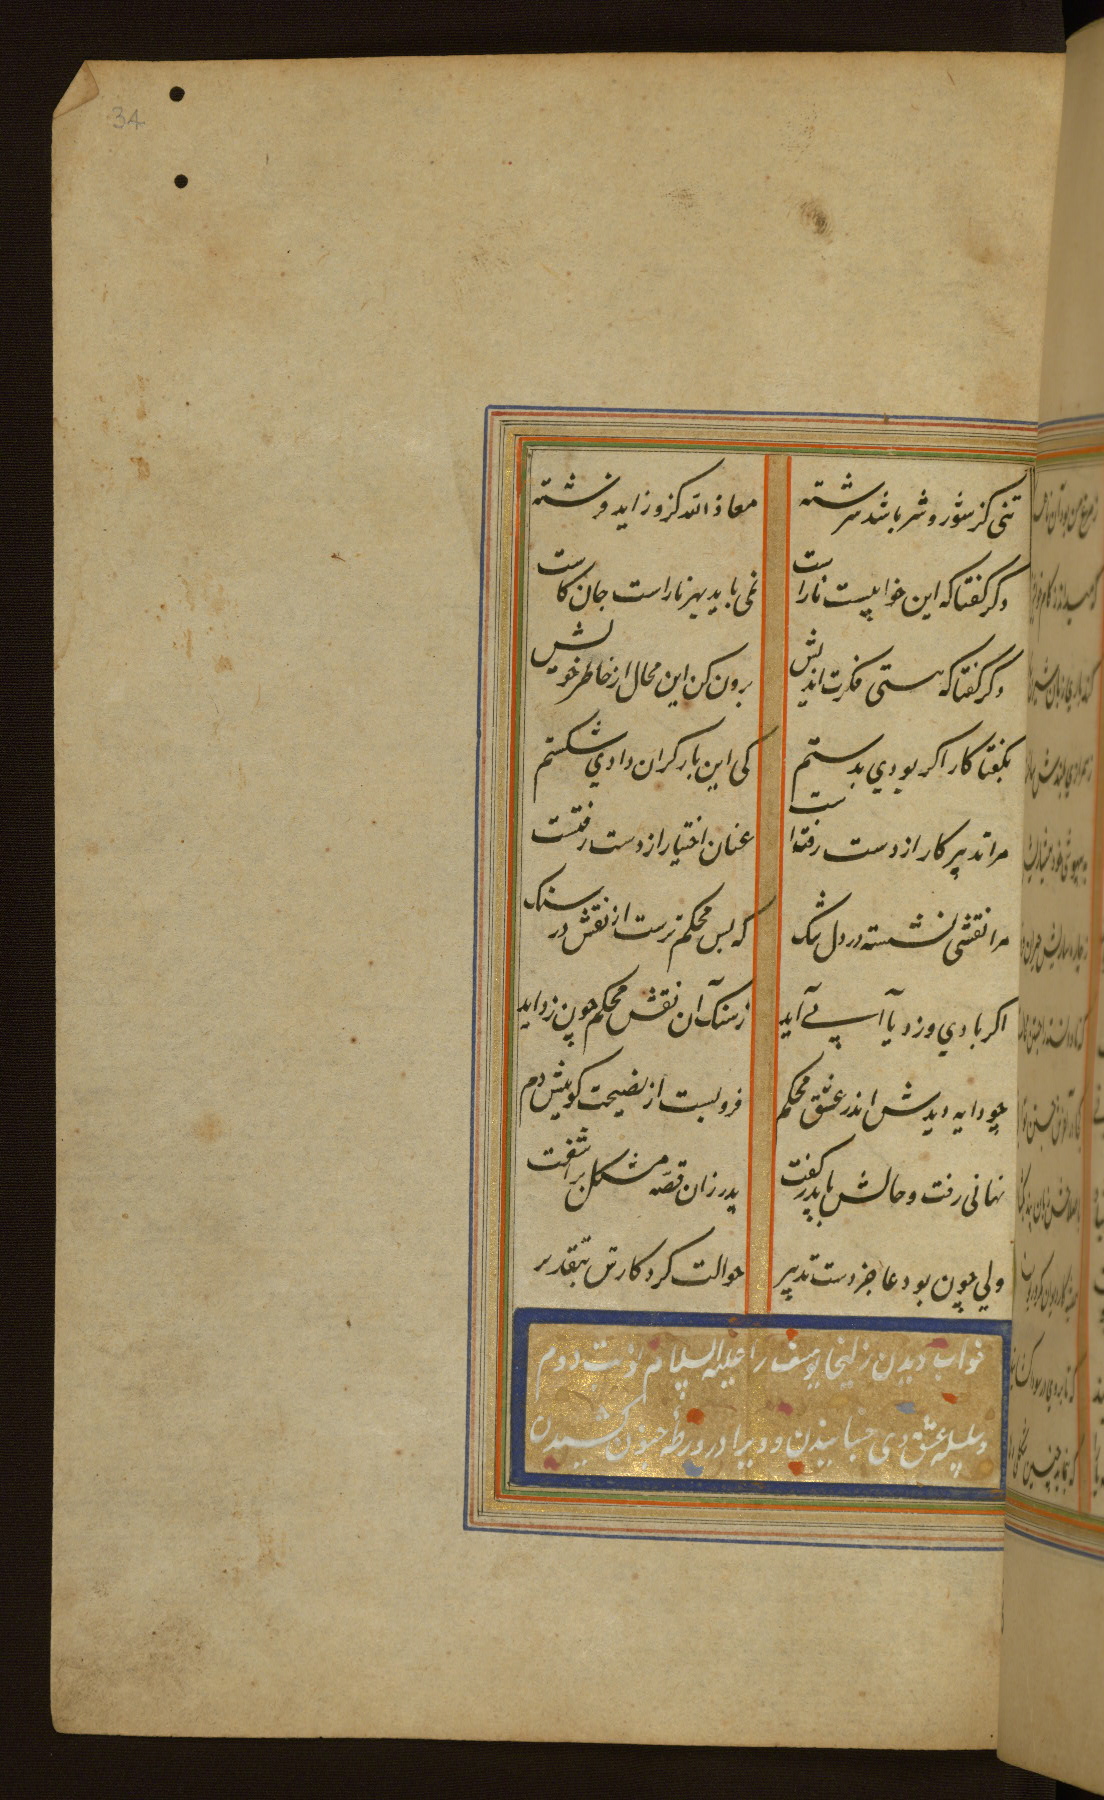 34
تنی کز شور و شر باشد سرشته معاذ الله کزو زاید فرشته
دگر گفتا که این خوابیست ناراست نمی باید بهر ناراست جان کاست
دگر گفتا که هستی فکرت اندیش برون کن این محال از خاطر خویش
بگفتا کار اگر بودی بدستم کی این بار گران دادی شکستم
مرا تدبیر کار از دست رفتست عنان اختیار از دست رفتست
مرا نقشی نشسته در دل تنگ که بس محکم ترست از نقش در سنگ
اگر بادی وزد یا آبی آید ز سنگ آن نقش محکم چون زداید
چو دایه دیدش اندر عشق محکم فرو بست از نصیحت گوییش دم
نهانی رفت و حالش با پدر گفت پدر زان قصه مشکل برآشفت
ولی چون بود عاجز دست تدبیر حوالت کرد کارش بتقدیر
خواب دیدن زلیخا یوسف را علیه السلام نوبت دوم
و سلسله عشق وی جنبانیدن و ویرا در ورطه جنون کشیدن